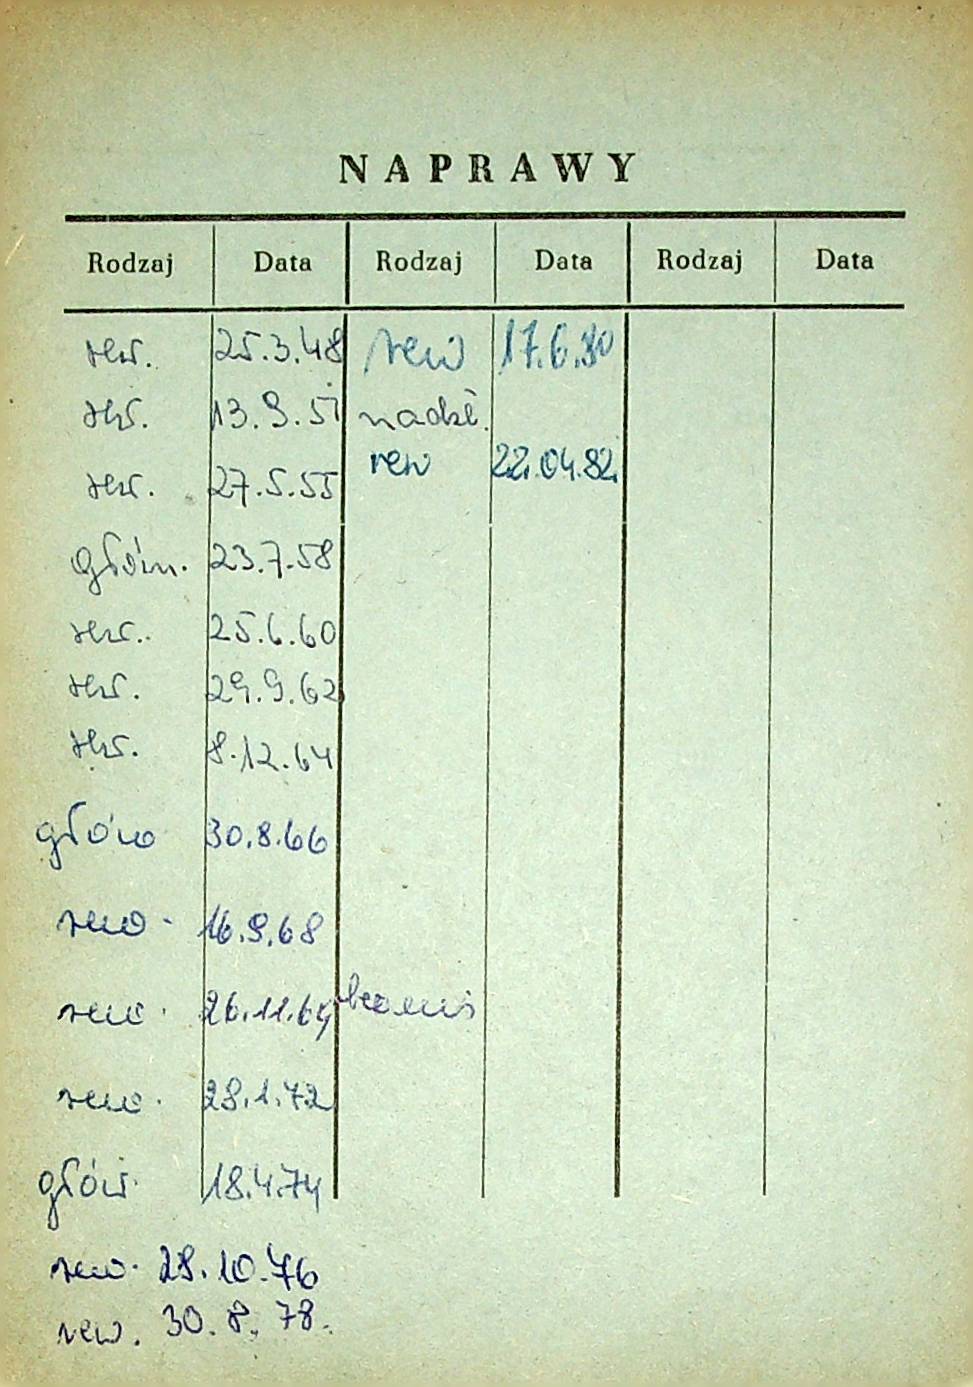 NAPRAWY
Rodzaj Data Rodzaj Data Rodzaj Data
rew. 25.3.48 rew 17.6.80
rew. 13.9.51 nadzł.
rew. 27.5.55 rew 22.04.82
główn. 23.7.58
rew. 25.6.60
rew. 29.9.62
rew. 8.12.64
głów 30.8.66
rew. 16.9.68
rew. 26.11.69
rew. 28.1.72
głów. 18.4.74
rew. 28.10.76
rew. 30.8.78.